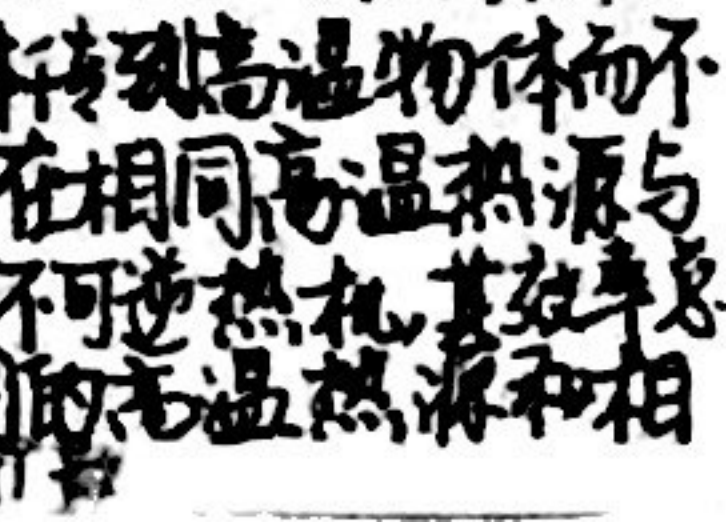 传到高温物体而不
在相同高温热源与
不可逆热机,其效率总
的高温热源和相